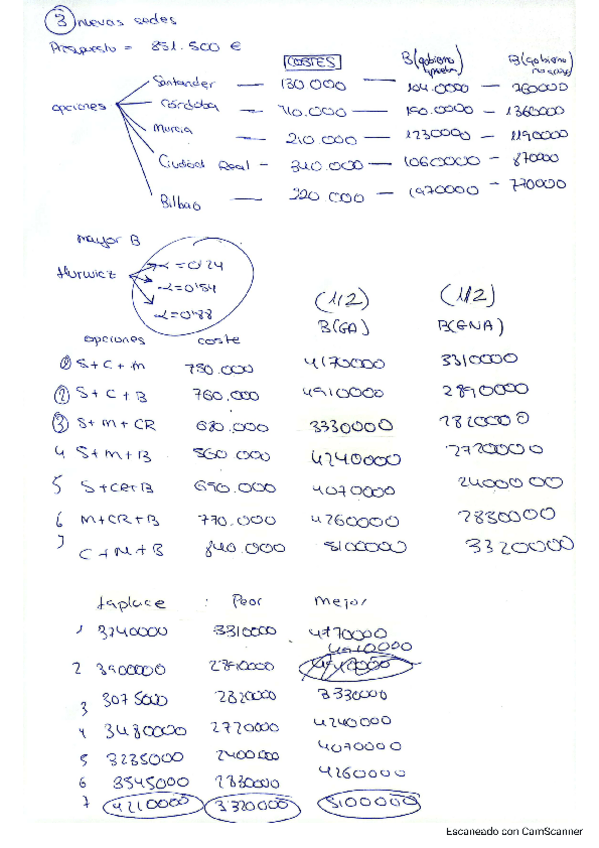 ③ nuevas sedes
Presupuesto = 851.500 €
COSTES B(gobierno B(gobierno
Santander — 130.000 — 1040.000 — 760000
opciones Córdoba — 410.000 — 190.0000 — 1360000
Murcia — 210.000 — 1230000 — 1190000
Ciudad Real — 340.000 — 1060000 — 870000
Bilbao — 220.000 — 1970000 — 770000
mayor B
Hurwicz α=0'24
α=0'54
α=0'88
(1/2) (1/2)
opciones coste B(GA) B(GNA)
① S+C+M 750.000 4170000 3310000
② S+C+B 760.000 4910000 2890000
③ S+M+CR 680.000 3330000 2820000
4 S+M+B 560.000 4240000 2720000
5 S+CR+B 690.000 4070000 2400000
6 M+CR+B 770.000 4260000 2830000
7 C+M+B 840.000 5100000 3320000
Laplace : Peor Mejor
1 3740000 3310000 4170000
4910000
2 3900000 2890000
3 3075000 2820000 3330000
4 3480000 2720000 4240000
5 3235000 2400000 4070000
6 3545000 2830000 4260000
7 4210000 3320000 5100000
Escaneado con CamScanner